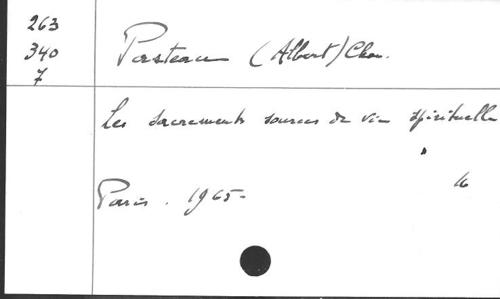 263
340
7
Pasteau (Albert) Chan.
Les sacrements sources de vie spirituelle
Paris. 1965-